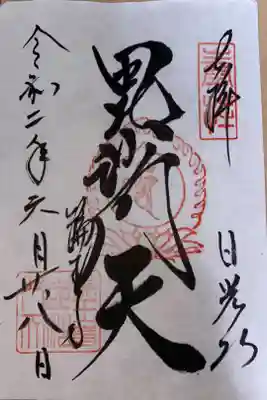 奉拝
日光山
毘沙門天
輪王寺
令和二年六月廿八日